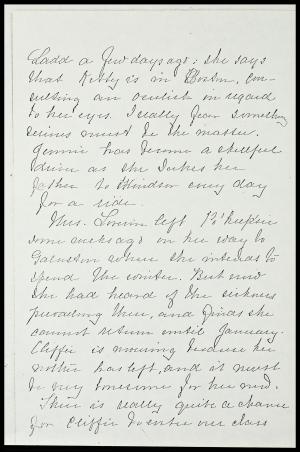 Ladd a few days ago: she says
that Kitty is in Boston, con-
sulting an oculist in regard
to her eyes. I really fear something
serious must be the matter.
Jennie has become a skillful
driver as she takes her
father to Windsor every day
for a ride.
Mrs. left Po'keepsie
some weeks ago on her way to
Galveston where she intends to
spend the winter. But
she had heard of the sickness
prevailing there, and finds she
cannot return until January.
Cliffie is mourning because her
mother has left, and it must
be very lonesome for her
There is really quite a chance
for Cliffie to enter our class